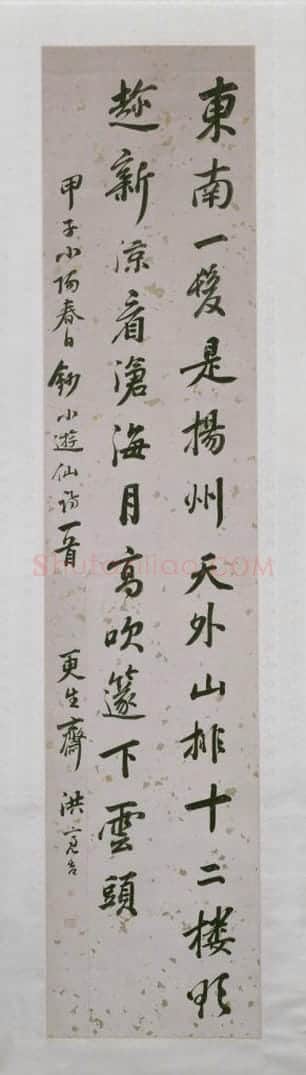 東南一髮是揚州天外山排十二楼欲
趂新涼看滄海月高吹篴下雲頭
甲子小陽春日鈔小遊仙詩一首 更生齋 洪亮吉